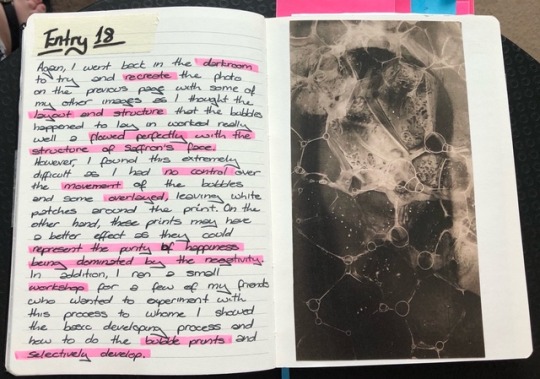 Entry 18
Again, I went back in the darkroom
to try and recreate the photo
on the previous page with some of
my other images as I thought the
layout and structure that the bubbles
happened to lay on worked really
well & flowed perfectly with the
structure of Saffron's face.
However, I found this extremely
difficult as I had no control over
the movement of the bubbles
and some overlayed, leaving white
patches around the print. On the
other hand, these prints may have
a better effect as they could
represent the purity of happiness
being dominated by the negativity.
In addition, I ran a small
workshop for a few of my friends
who wanted to experiment with
this process to whome I showed
the basic developing process and
how to do the bubble prints and
selectively develop.